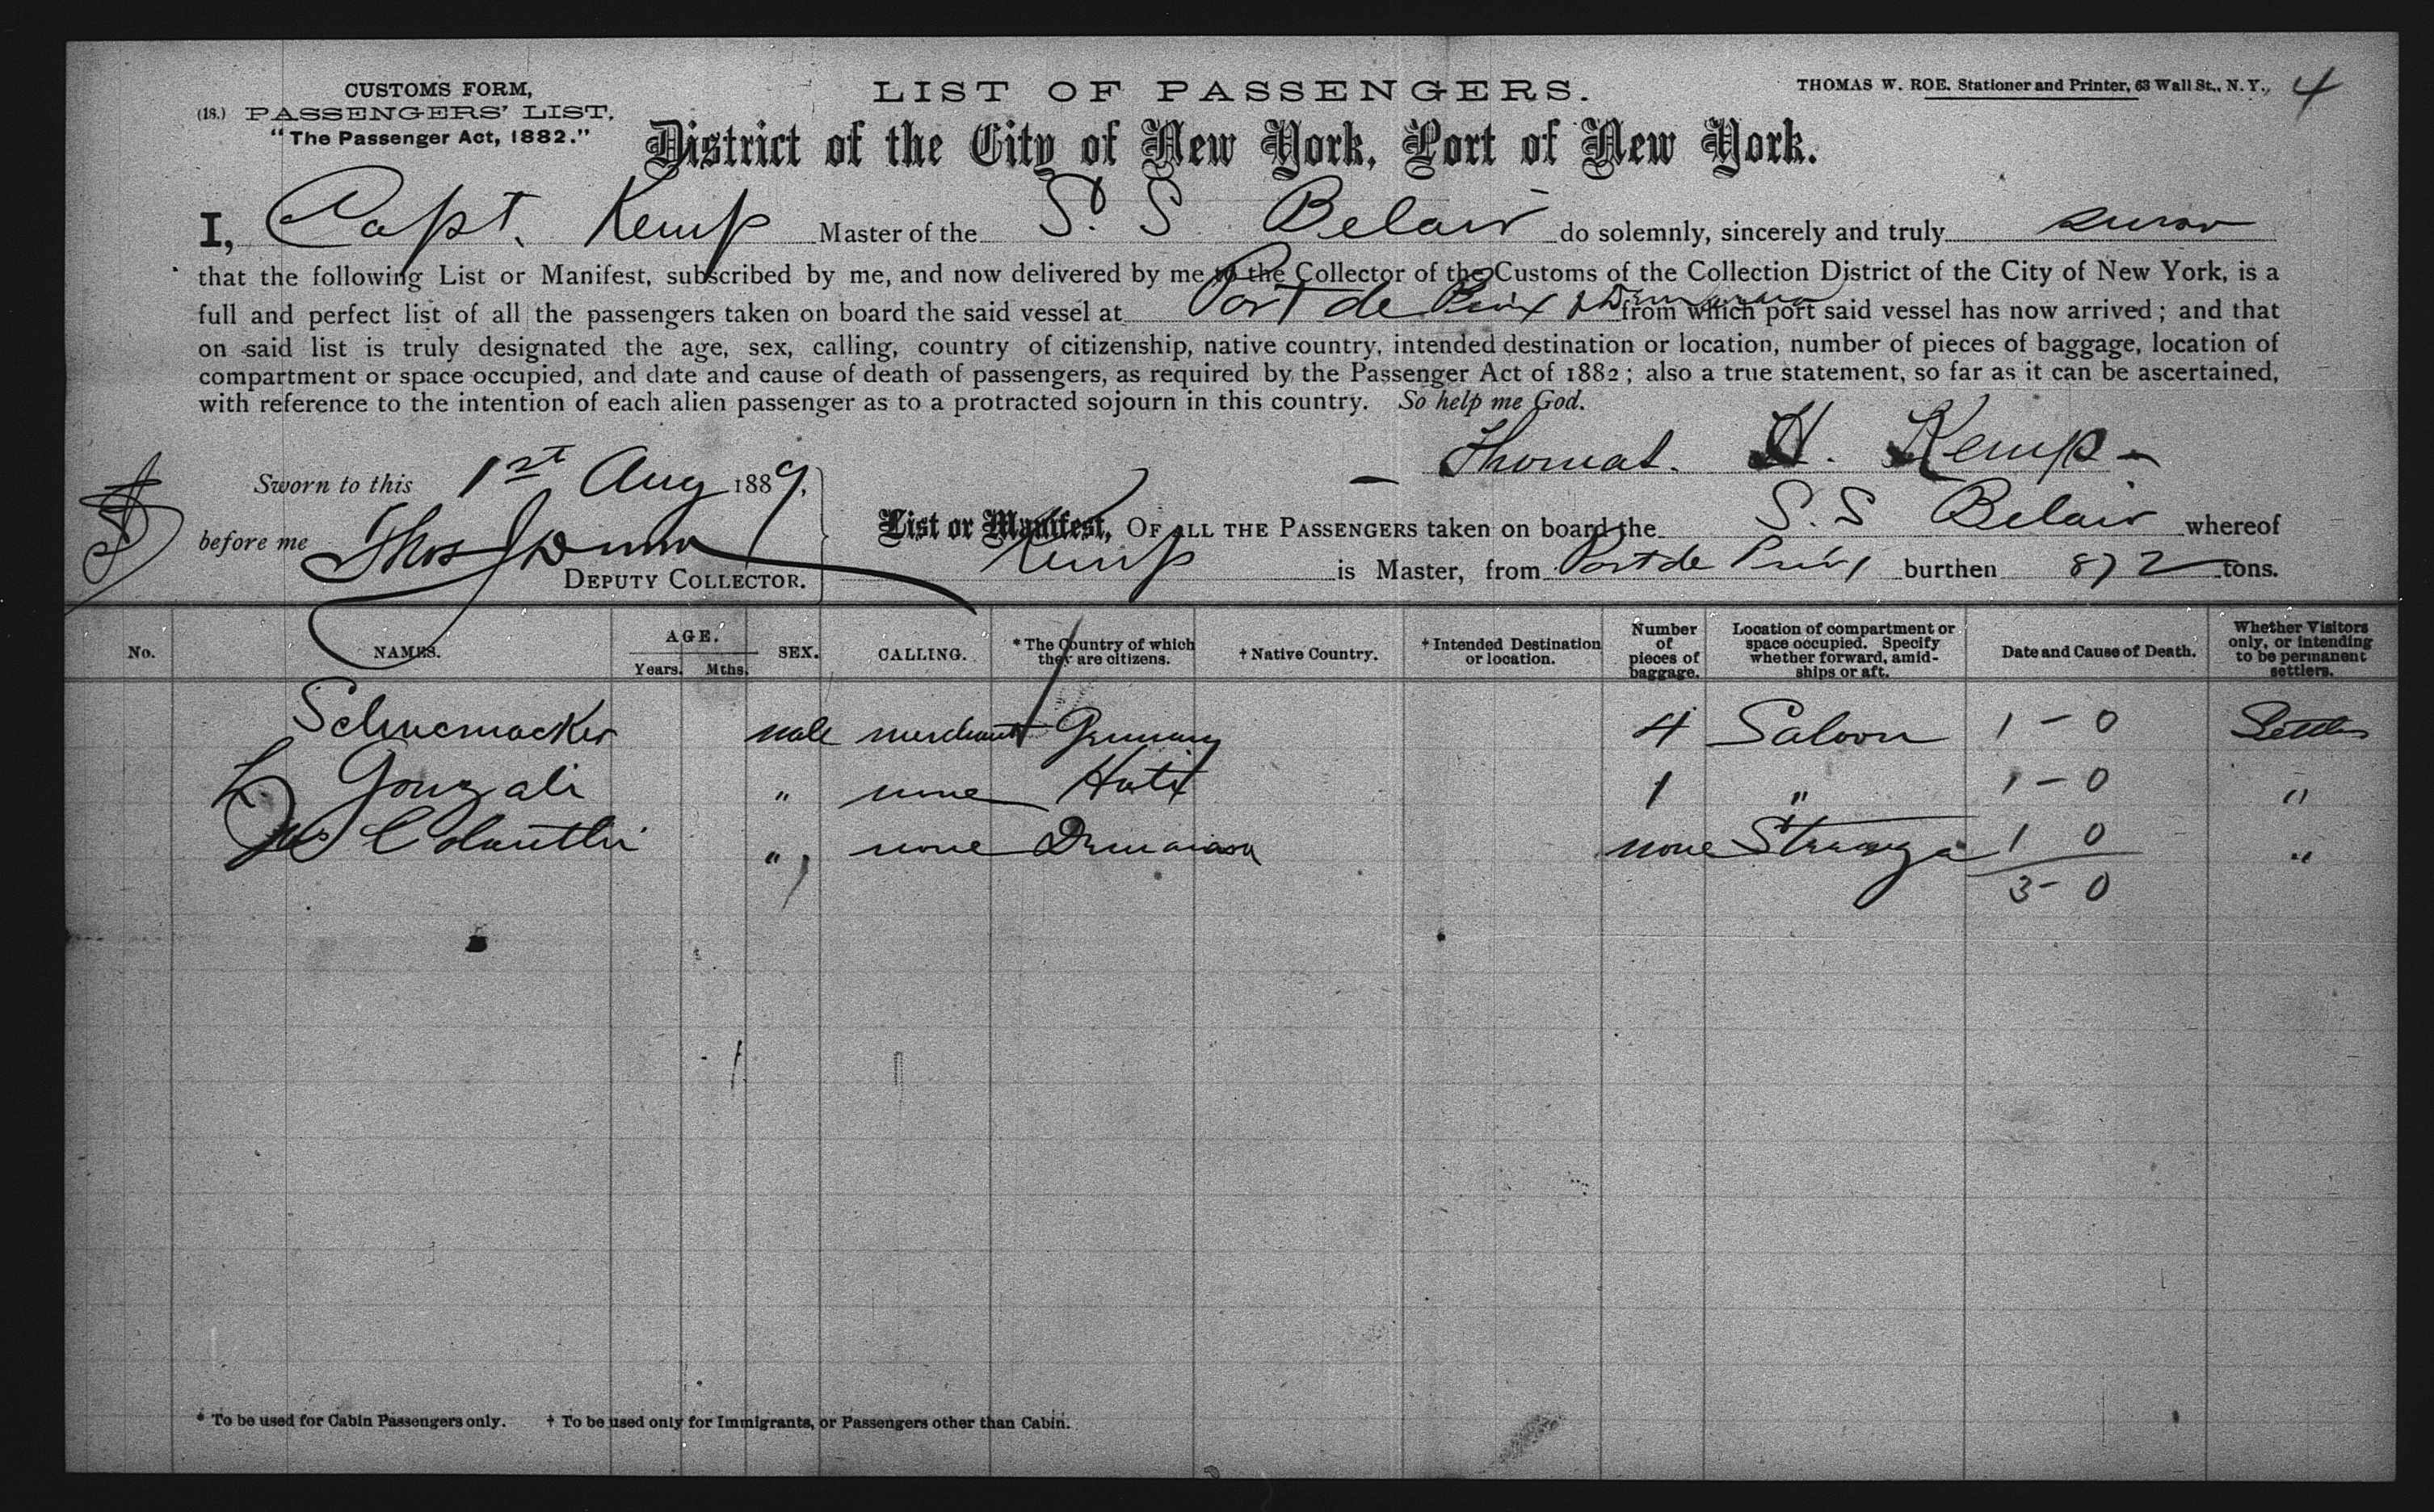 CUSTOMS FORM,
(18.) PASSENGERS' LIST,
"The Passenger Act, 1882."
LIST OF PASSENGERS.
THOMAS W. ROE. Stationer and Printer, 63 Wall St., N. Y.,
4
District of the City of New York, Port of New York.
I, Capt. Kemp Master of the S. S Belair do solemnly, sincerely and truly swear
that the following List or Manifest, subscribed by me, and now delivered by me to the Collector of the Customs of the Collection District of the City of New York, is a
full and perfect list of all the passengers taken on board the said vessel at Port de Paix & Demarara from which port said vessel has now arrived; and that
on said list is truly designated the age, sex, calling, country of citizenship, native country, intended destination or location, number of pieces of baggage, location of
compartment or space occupied, and date and cause of death of passengers, as required by the Passenger Act of 1882; also a true statement, so far as it can be ascertained,
with reference to the intention of each alien passenger as to a protracted sojourn in this country. So help me God.
Thomas. H. Kemp
Sworn to this 1st Aug 1889.
before me Thos J Dunn
DEPUTY COLLECTOR.
List or Manifest, OF ALL THE PASSENGERS taken on board the S. S Belair whereof
Kemp is Master, from Port de Paix burthen 872 tons.
No. NAMES. AGE. Years. Mths. SEX. CALLING. * The Country of which they are citizens. † Native Country. † Intended Destination or location. Number of pieces of baggage. Location of compartment or space occupied. Specify whether forward, amid-ships or aft. Date and Cause of Death. Whether Visitors only, or intending to be permanent settlers.
Schuemacker male merchant Germany 4 Saloon 1 - 0 Settler
L Gonzali " none Haiti 1 " 1 - 0 "
" none Demarara none 1 0 "
3 - 0
* To be used for Cabin Passengers only. † To be used only for Immigrants, or Passengers other than Cabin.